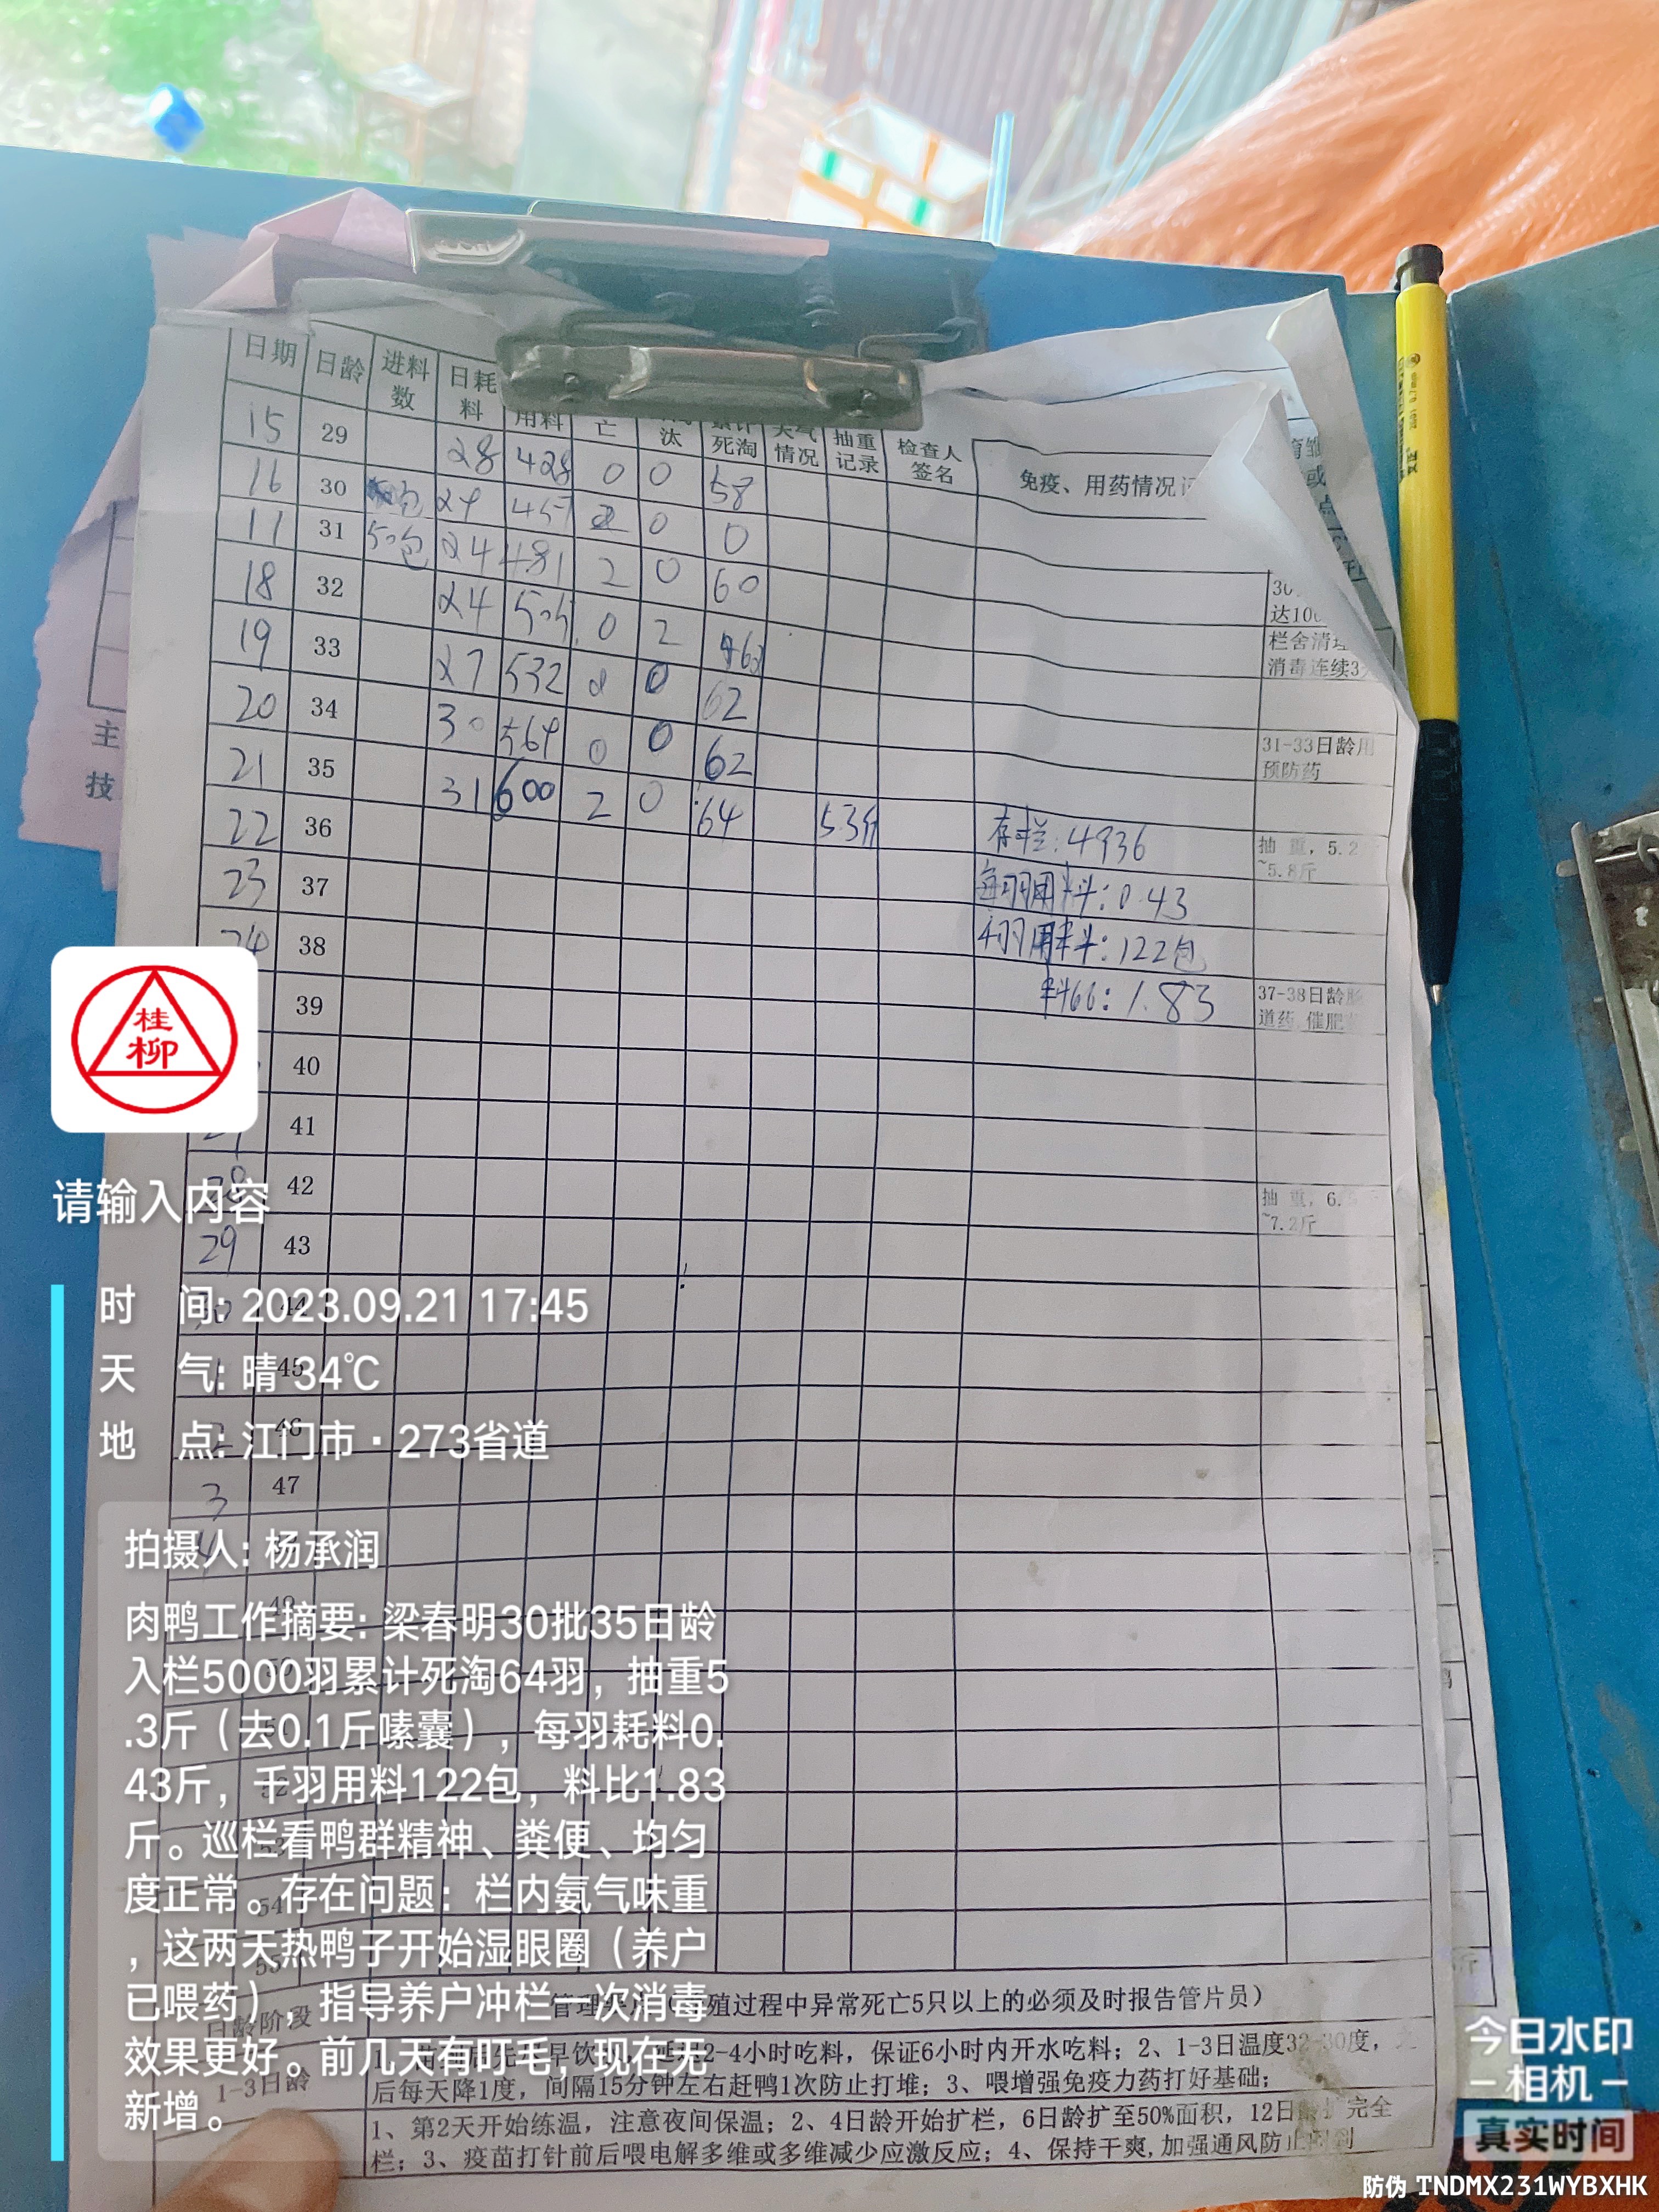 日期 日龄 进料数 日耗料 用料 亡 汰 死淘 情况 抽重记录 检查人签名 免疫、用药情况
15 29 28 428 0 0 58
16 30 24 457 2 0 0
17 31 50包 24 481 2 0 60
18 32 24 505 0 2 62
19 33 27 532 0 0 62
20 34 30 564 0 0 62
21 35 31 600 2 0 64 5.3斤 存栏:4936
22 36 抽 重,5.2
~5.8斤
23 37 每羽用料:0.43
24 38 千羽用料:122包
39 1.83 37-38日龄肠
道药 催肥
40
41
28 42 抽 重,6.
~7.2斤
29 43
44
45
46
3 47
4
49
54
55
达100
栏舍清理
消毒连续3天
31-33日龄用
预防药
主
技
桂柳
请输入内容
时 间: 2023.09.21 17:45
天 气: 晴 34℃
地 点: 江门市·273省道
拍摄人: 杨承润
肉鸭工作摘要: 梁春明30批35日龄
入栏5000羽累计死淘64羽，抽重5
.3斤（去0.1斤嗉囊），每羽耗料0.
43斤，千羽用料122包，料比1.83
斤。巡栏看鸭群精神、粪便、均匀
度正常。存在问题：栏内氨气味重
，这两天热鸭子开始湿眼圈（养户
已喂药），指导养户冲栏一次消毒
效果更好。前几天有叮毛，现在无
新增。
日龄阶段
殖过程中异常死亡5只以上的必须及时报告管片员）
1-3日龄
2-4小时吃料，保证6小时内开水吃料；2、1-3日温度32-30度，
后每天降1度，间隔15分钟左右赶鸭1次防止打堆；3、喂增强免疫力药打好基础；
1、第2天开始练温，注意夜间保温；2、4日龄开始扩栏，6日龄扩至50%面积，12日龄扩完全
栏；3、疫苗打针前后喂电解多维或多维减少应激反应；4、保持干爽,加强通风防止
今日水印
相机
真实时间
防伪 TNDMX231WYBXHK